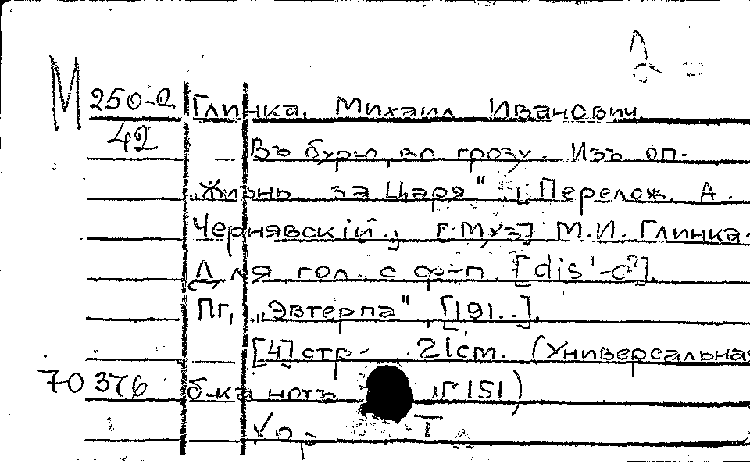 М 250-2 Глинка, Михаил Иванович.
42 Въ бурю, во грозу. Изъ оп.
„Жизнь за Царя" ; Перелож. А.
Чернявскій.; [Муз] М.И. Глинка.
Для гол. с ф-п. [dis'-c²].
Пг, „Эвтерпа", [191..].
[4] стр. 21см. (Универсальная
70376 б-ка нотъ 151)